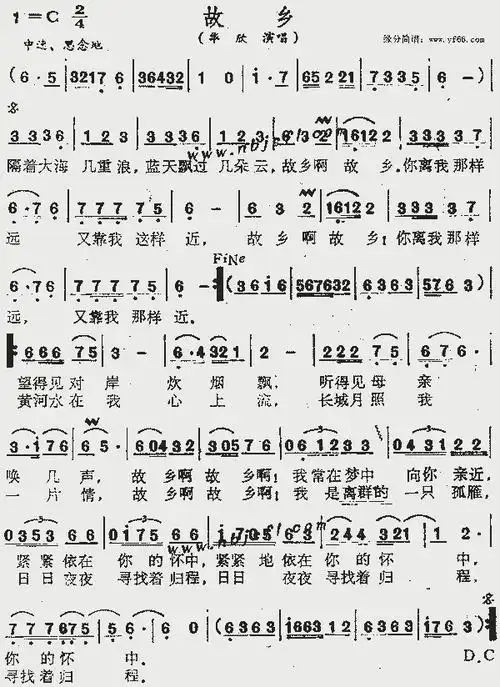 1=C 2/4
故乡
(华欣 演唱)
缘分简谱:www.yf66.com
中速、思念地
(6·5 3217 6 36432 1 0 i·7 65221 7335 6 -)
3336 123 3336
隔着大海 几重浪,蓝天飘过 几朵云,故乡啊 故 乡.你离我那样
6·76 77775 6 - 6 3 2 16122 333 37
远 又靠我 这样 近, 故 乡 啊 故 乡!你离我那样
FiNe
6·76 77775 6 - (3616 567632 6363 5763)
远, 又靠我 那样 近.
666 75 3 - 6·4321 2 - 222 75 676·
望得见对 岸 炊 烟 飘, 听得见母 亲
黄河水在我 心 上 流, 长城月照 我
3·176 65· 60432 30576 061233 043122
唤 几 声, 故 乡啊 故 乡啊!我常在梦中 向你 亲近,
一 片 情, 故 乡啊 故 乡啊!我 是离群的 一只 孤雁,
0353 66 0175 66 63 244 321 12·
紧紧 依在 你 的 怀中,紧紧 地 依在你 的 怀 中,
日日 夜夜 寻找着 归程,日日 夜夜 寻找着 归 程,
777675 5·6· 6 0 (6363 166312 6363 6763)
你 的怀 中.
寻找着归 程.
D.C